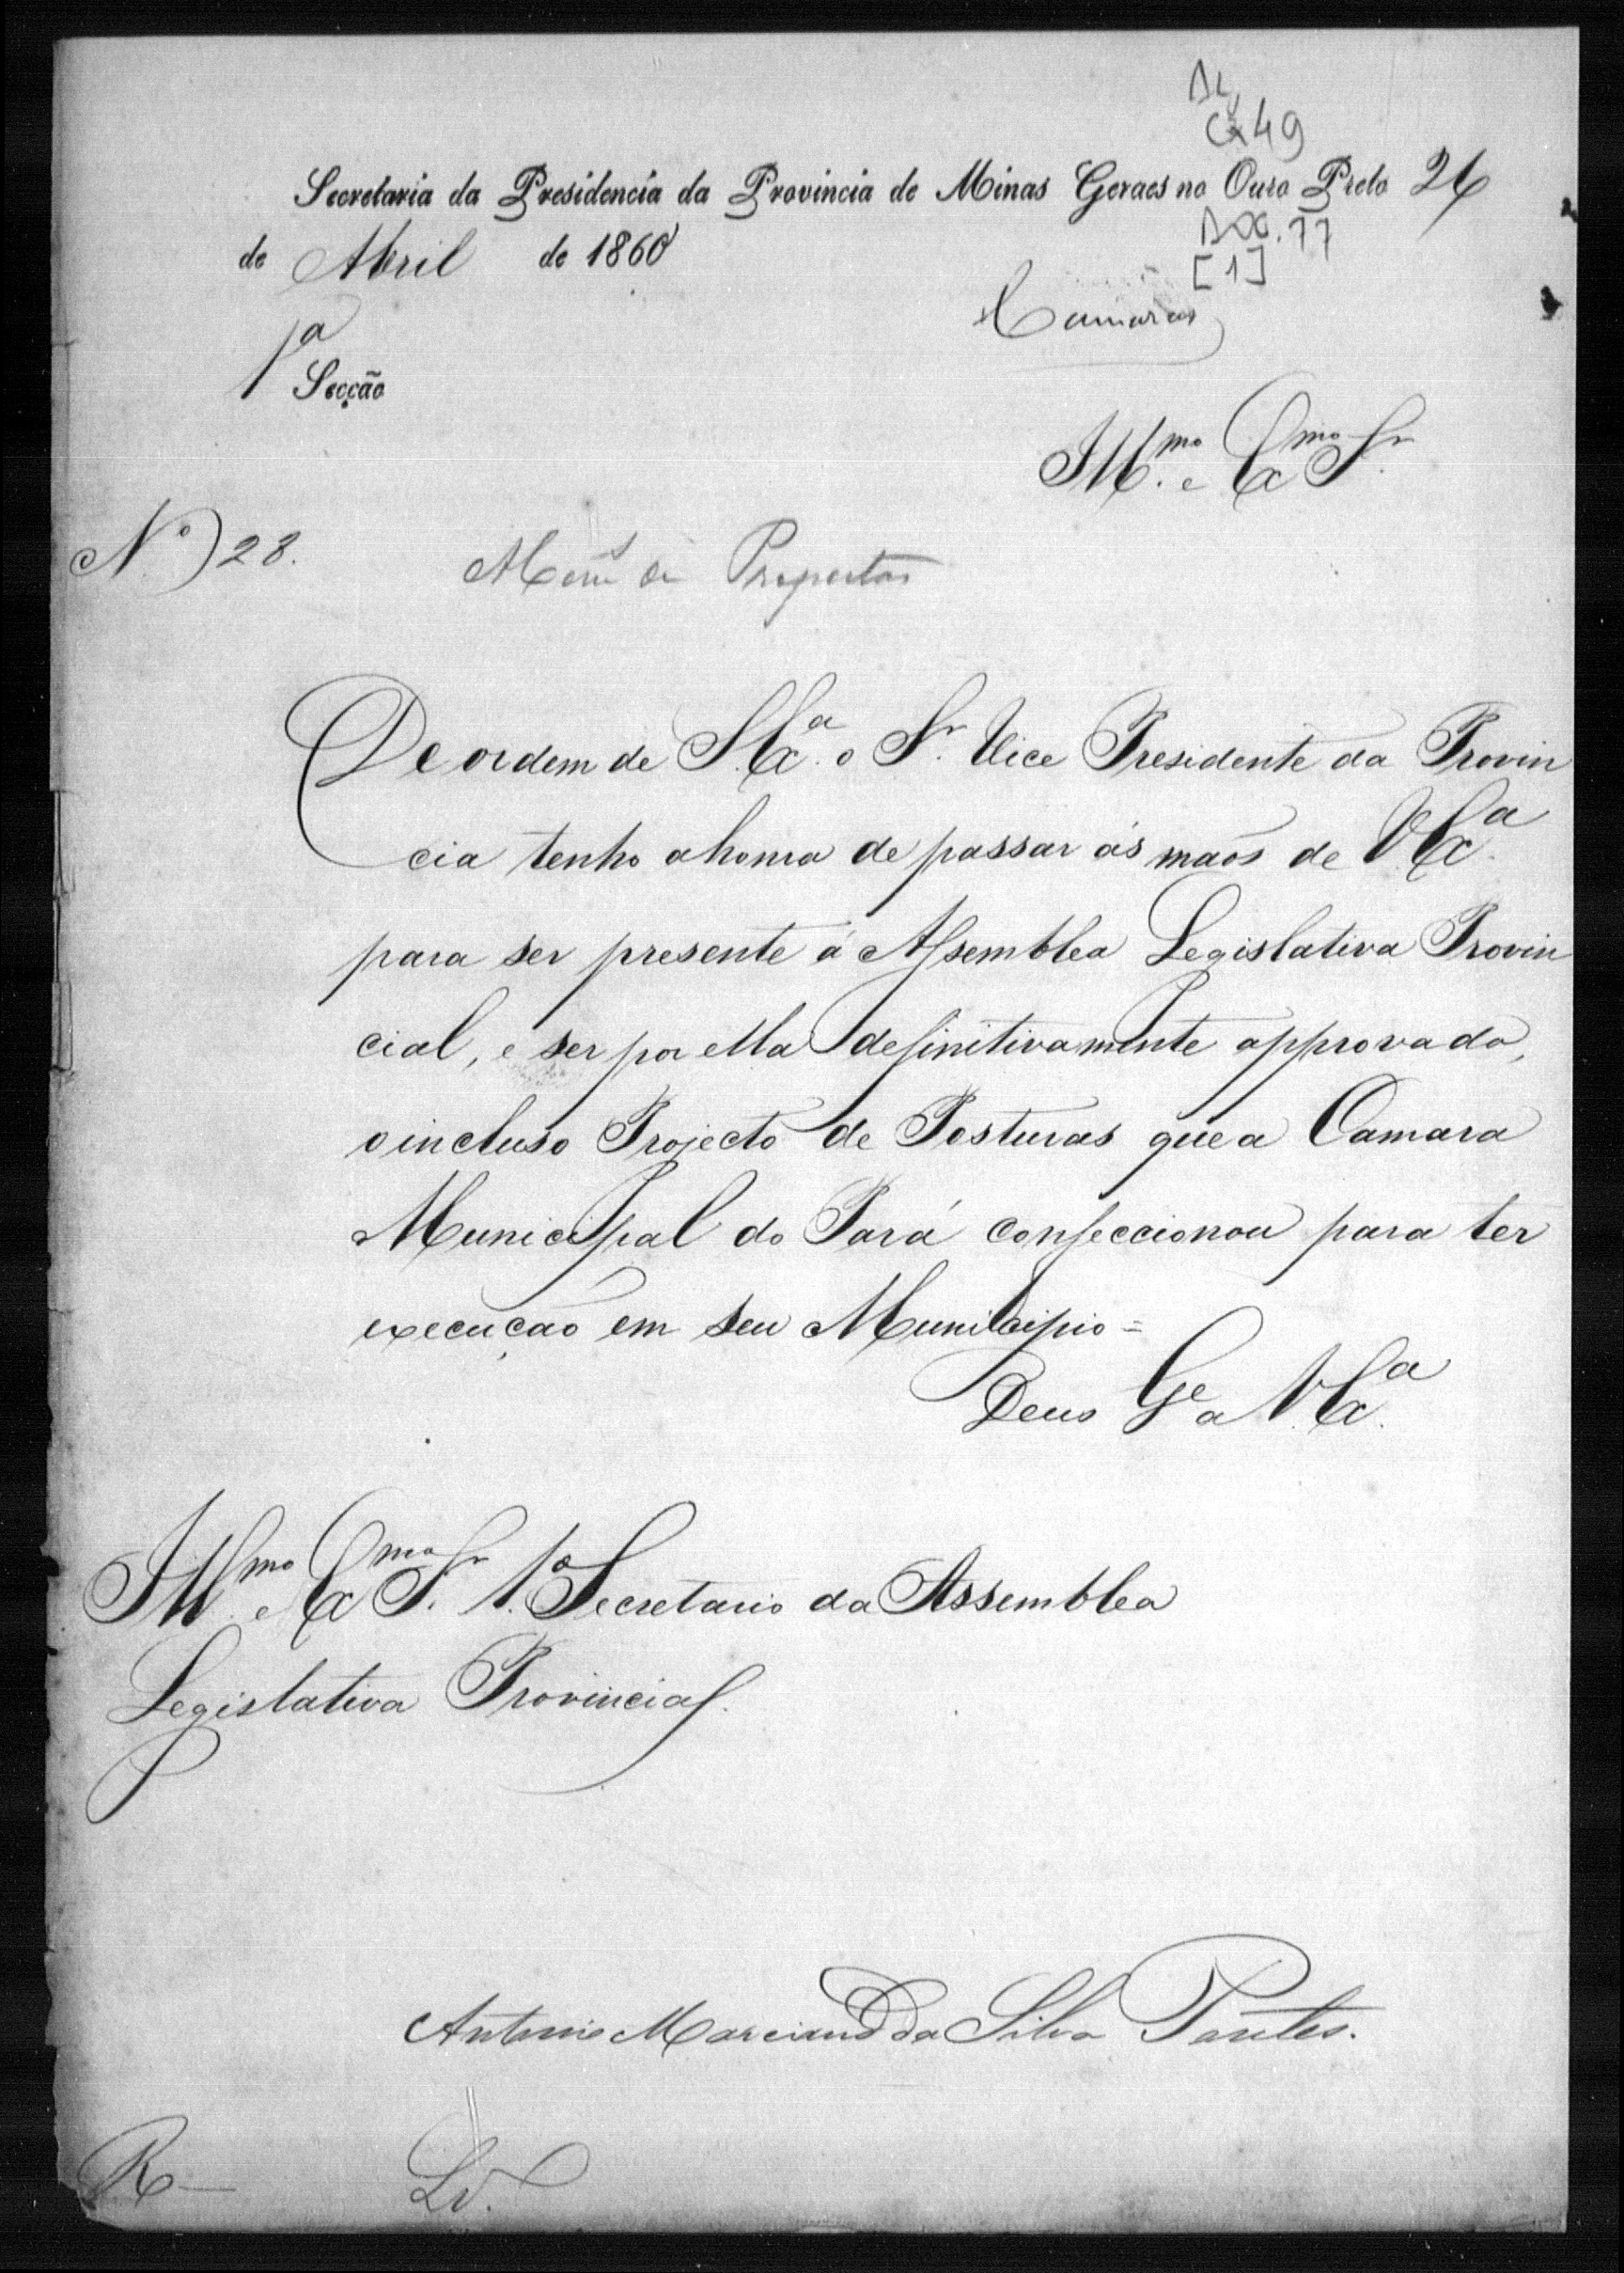 AL
Cx 49
Secretaria da Presidencia da Provincia de Minas Geraes no Ouro Preto 26
de Abril de 1860
DOC. 77
[1]
Camaras
1ª Secção
Ill.mo e Ex.mo Sr.
N.º 28.
De ordem de S. Ex.ª o Sr. Vice Presidente da Provin
cia tenho a honra de passar ás mãos de V. Ex.ª
para ser presente á Assemblea Legislativa Provin
cial, e ser por ella definitivamente approvado,
o incluso Projecto de Posturas que a Camara
Municipal do Pará confeccionou para ter
execução em seu Municipio =
Deus G.e a V. Ex.ª
Ill.mo e Ex.mo Sr. 1.º Secretario da Assemblea
Legislativa Provincial.
Antonio Marciano da Silva Pontes.